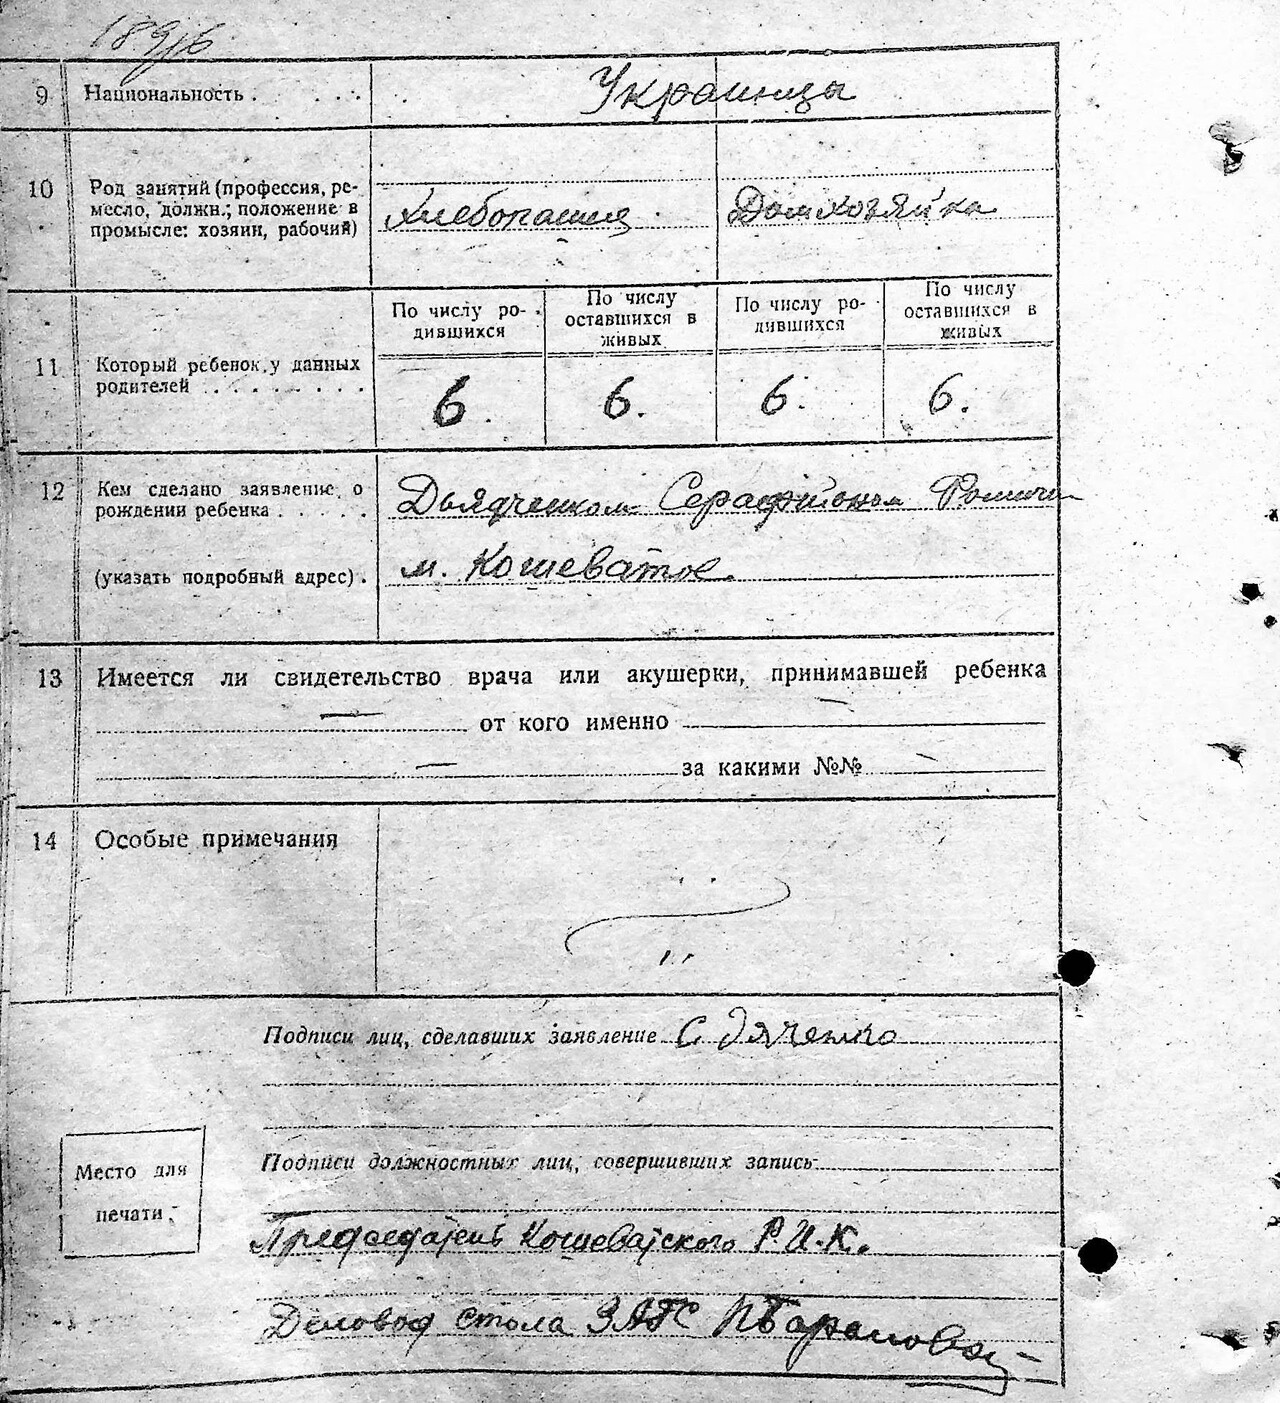 189/6
9 Национальность . . . . . Украинцы
10 Род занятий (профессия, ре-
месло, должн.; положение в
промысле: хозяин, рабочий)
Хлебопашец Домхозяйка
По числу ро-
дившихся
По числу
оставшихся в
живых
По числу ро-
дившихся
По числу
оставшихся в
живых
11 Который ребенок у данных
родителей . . . . . . . .
6. 6. 6. 6.
12 Кем сделано заявление о
рождении ребенка . . . . .
Дьядченком Серафимом
(указать подробный адрес) . м. Кошеватое
13 Имеется ли свидетельство врача или акушерки, принимавшей ребенка
— от кого именно —
— за какими №№ —
14 Особые примечания
Подписи лиц, сделавших заявление С Дяченко
Подписи должностных лиц, совершивших запись
Место для
печати.
Председатель Кошеватского Р.И.К.
Деловод стола ЗАГС